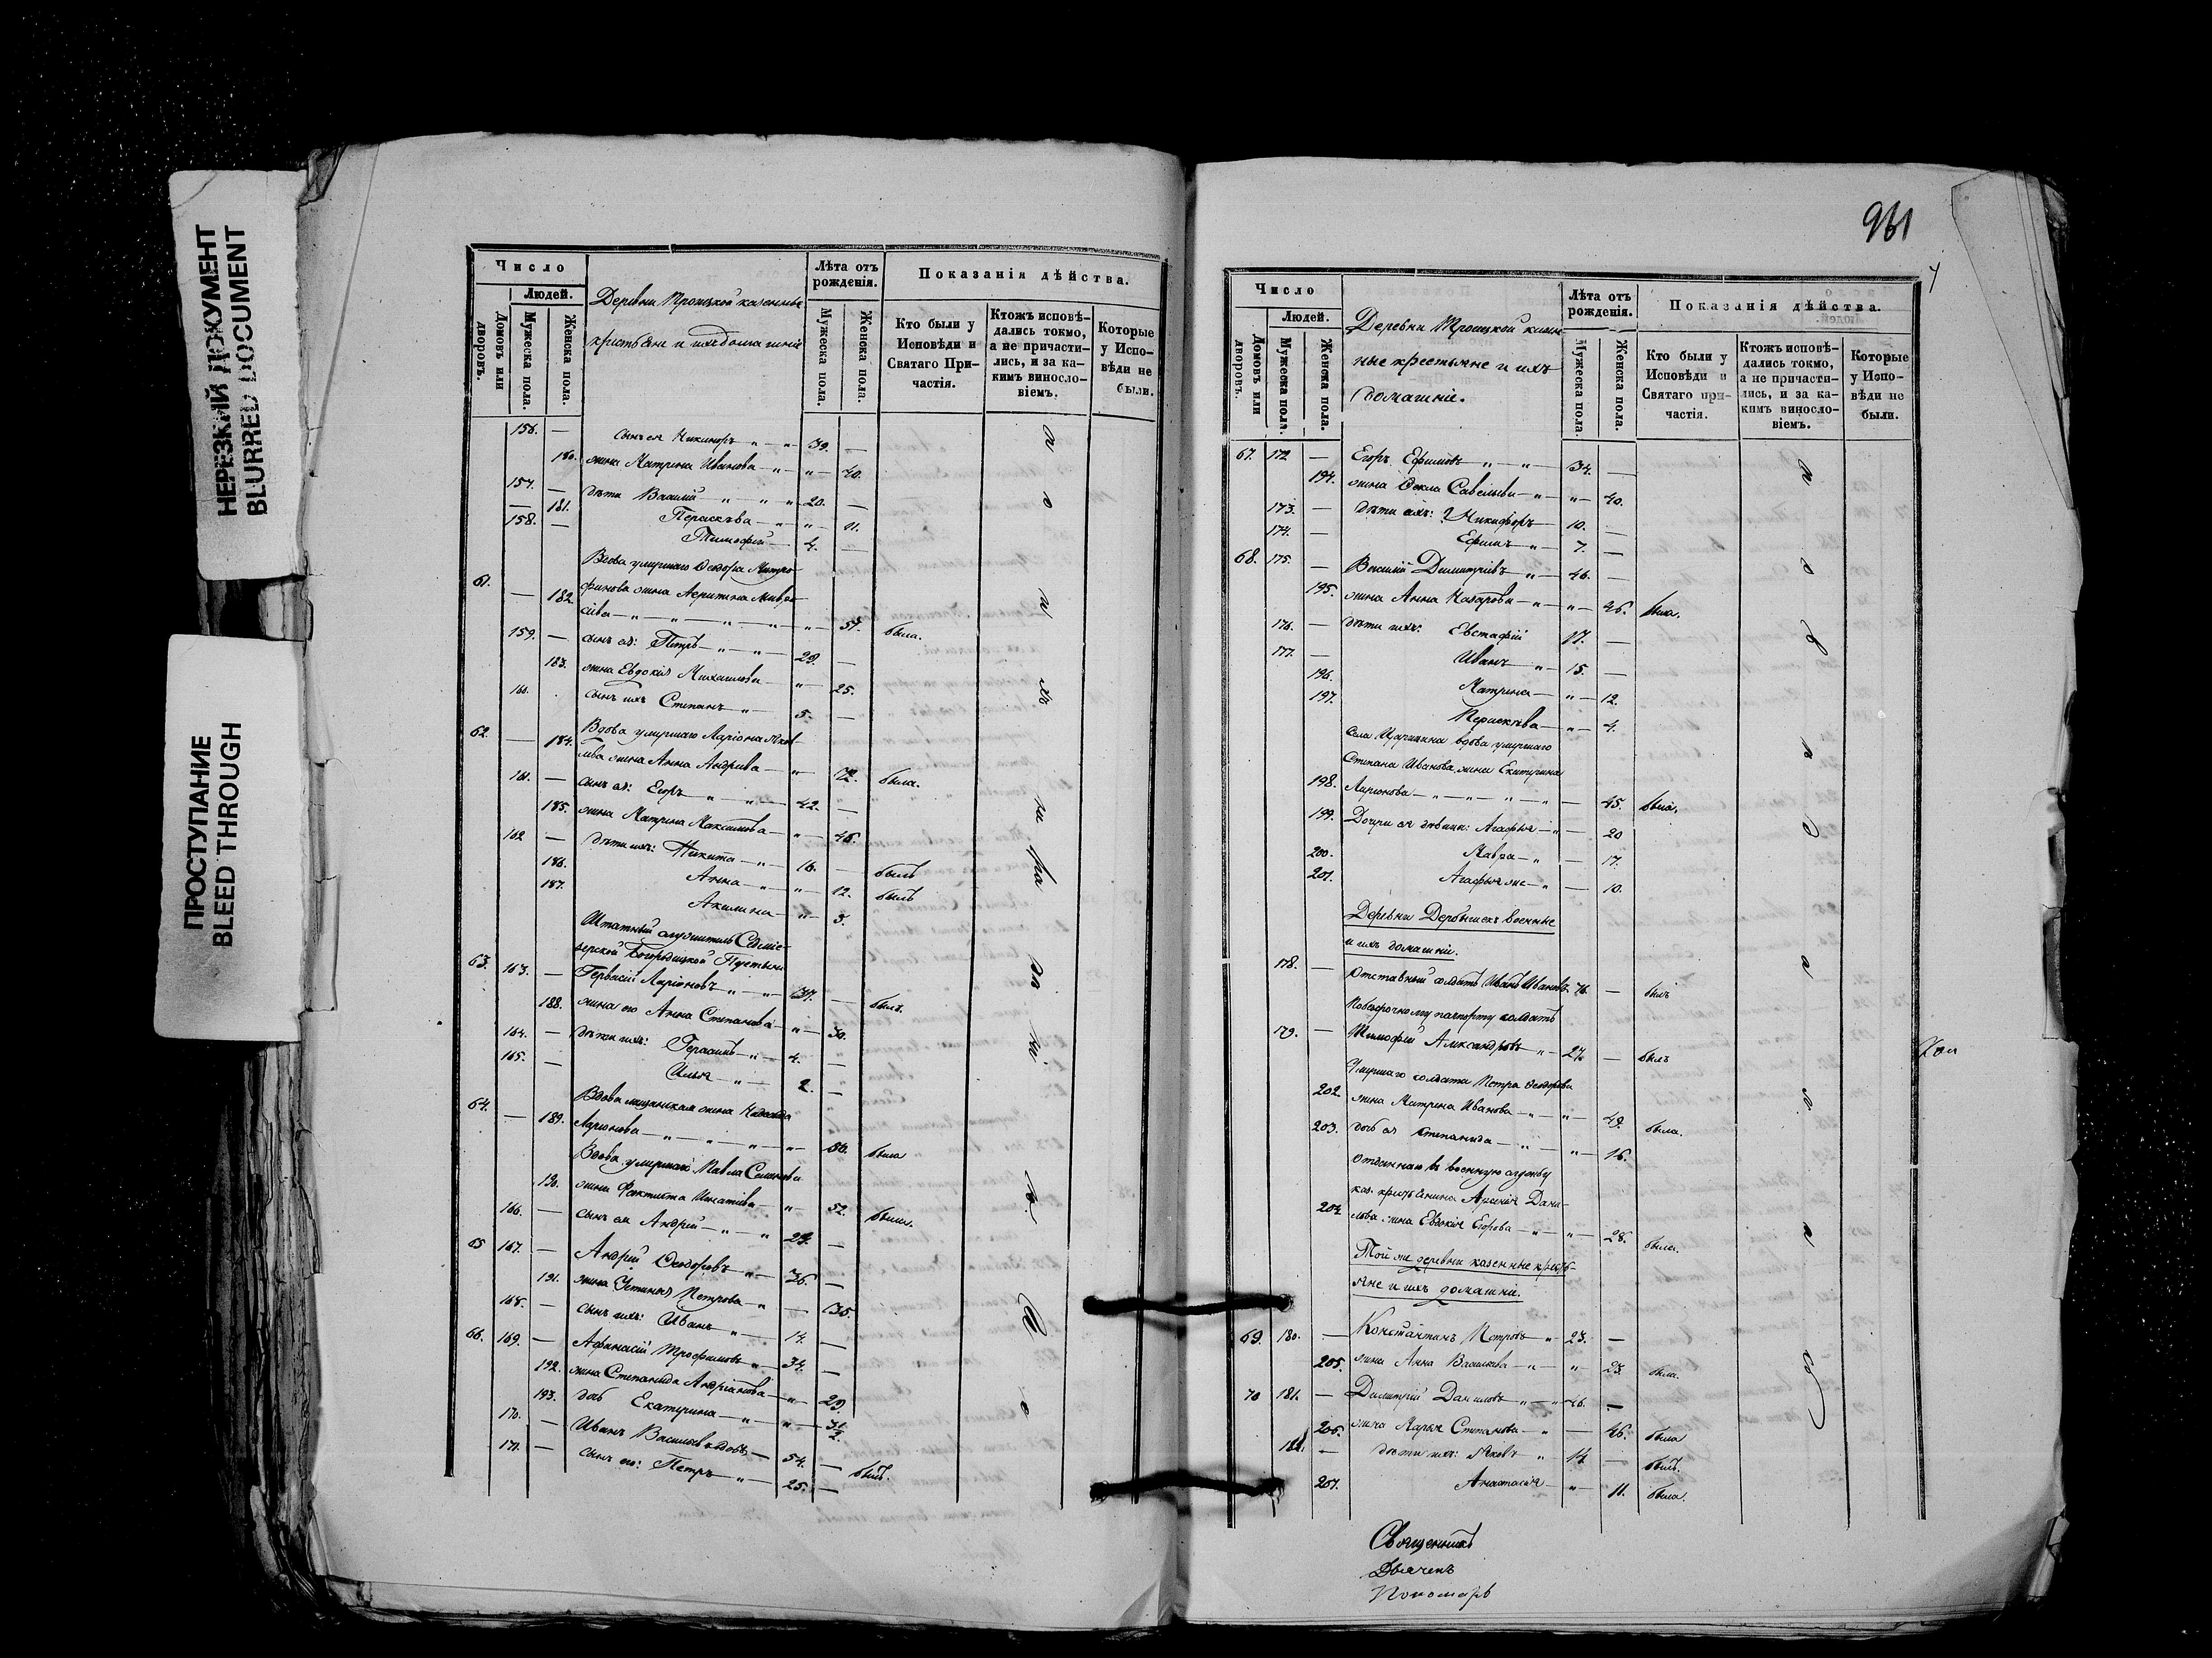 НЕРЕЗКИЙ ДОКУМЕНТ
BLURRED DOCUMENT
ПРОСТУПАНИЕ
BLEED THROUGH
Число
Людей.
Домовъ или дворовъ.
Мужеска пола.
Женска пола.
Деревни Троицкой казенные
крестьяне и ихъ домашніе
Лѣта отъ рожденія.
Мужеска пола.
Женска пола.
Показанія дѣйства.
Кто были у Исповѣди и Святаго Причастія.
Ктожъ исповѣдались токмо, а не причастились, и за какимъ винословіемъ.
Которые у Исповѣди не были.
156. — сынъ ея Никифоръ 39. —
180. жена Матрена Иванова 40.
157. — дѣти Василій 20. —
— 181. Параскева 11.
158. — Тимофей 4. —
Вдова умершаго Ѳеодора Митро-
61. — 182. фанова жена
57. была.
159. — сынъ ея: Петръ 29. —
183. жена Евдокія Михаилова 25.
160. сынъ ихъ Степанъ 5. —
62. — 184. Вдова умершаго Ларіона Яков-
лева жена Анна Андреева 72. была.
161. — сынъ ея: Егоръ 42. —
185. жена Матрена Максимова 46.
162 — дѣти ихъ: Никита 16. — былъ
186. Анна 12. былъ
187. Акилина 3.
Штатный служитель Седміе-
зерской Богородицкой Пустыни
63. 163. — Гервасій Ларіоновъ 37. — былъ.
188. жена его Анна Степанова 30.
164. — дѣти ихъ: Герасимъ 4. —
165. — Илья 2. —
64. Вдова жена
— 189. Ларіонова 50. была
Вдова умершаго Павла Семенова
190. жена Игнатіева 52. была.
166. — сынъ ея Андрей 29. —
65 167. — Андрей Ѳеодоровъ 36 —
191. жена Устинья Петрова 35.
168. — сынъ ихъ: Иванъ 14. —
66. 169. — Афанасій Трофимовъ 34. —
192. жена Степанида Андріанова 29.
193. дочь Екатерина
170. — Иванъ Васильевъ вдовъ 54. — былъ.
171. — сынъ его: Петръ 25. —
961
Число
Людей.
Домовъ или дворовъ.
Мужеска пола.
Женска пола.
Деревни Троицкой казен-
ные крестьяне и ихъ
домашніе.
Лѣта отъ рожденія.
Мужеска пола.
Женска пола.
Показанія дѣйства.
Кто были у Исповѣди и Святаго причастія.
Ктожъ исповѣдались токмо, а не причастились, и за какимъ винословіемъ.
Которые у Исповѣди не были.
67. 172 — Егоръ Ефимовъ 34. —
194. жена Ѳекла Савельева 40.
173. — дѣти ихъ: Никифоръ 10. —
174. — Ефимъ 7. —
68. 175. — Василій Димитріевъ 46. —
195. жена Анна Назарова 46. была.
176. — дѣти ихъ: Евстафій 17. —
177. — Иванъ 15. —
196. Матрена 12.
197. Параскева 4.
Села Царицина вдова умершаго
Степана Иванова жена Екатерина
198. Ларіонова 45. была.
199. Дочери ея дѣвицы: Агафья 20
200. Мавра 17.
201. Агафья же 10.
Деревни Дербышекъ военные
и ихъ домашніе.
178. — Отставный солдатъ Иванъ Ивановъ 76. — былъ
Побезсрочному паспорту солдатъ
179. — Тимофей Александровъ 27. — былъ
Умершаго солдата Петра Ѳеодорова
202. жена Матрена Иванова 49. была.
203. дочь ея Степанида 16.
Отданнаго въ военную службу
каз. крестьянина Арсенія Дани-
204. лова жена Евдокія Егорова 28. была.
Той же деревни казенные кресть-
яне и ихъ домашніе.
69. 180. — Константинъ Петровъ 23. —
205. жена Анна Васильева 23. была.
70 181. — Димитрій Даниловъ 46. —
206. жена Марья Степанова 46. была
182. — дѣти ихъ: Яковъ 14 — былъ.
207. Анастасія 11. была.
Священникъ
Дьячекъ
Пономарь